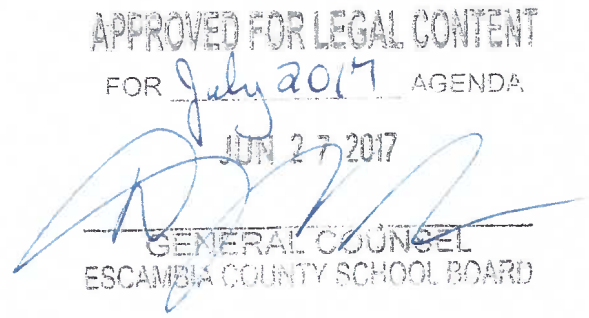 APPROVED FOR LEGAL CONTENT
FOR July 2017 AGENDA
JUN 27 2017
GENERAL COUNSEL
ESCAMBIA COUNTY SCHOOL BOARD